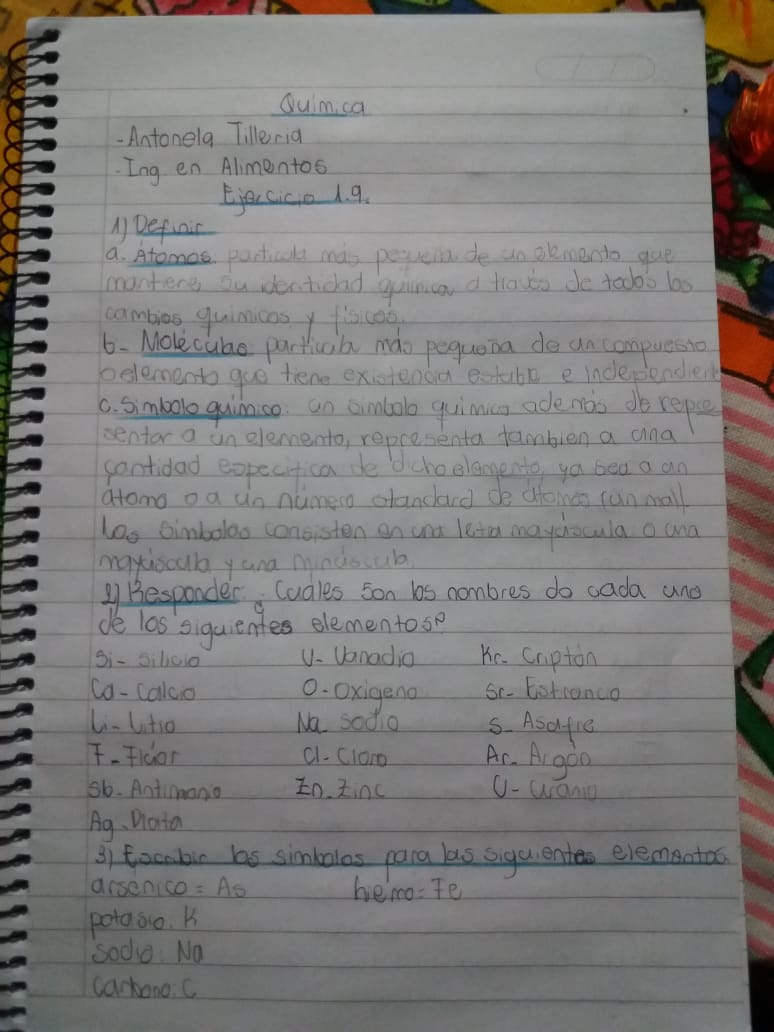 Quimica
-Antonela Tilleria
-Ing en Alimentos
Ejercicio 1.9.
1) Definir
a. Átomos. particula más pequeña de un elemento que
mantiene su identidad química a través de todos los
cambios químicos y físicos.
b- Moléculas particula más pequeña de un compuesto
o elemento que tiene existencia estable e independient
c. Simbolo químico: un simbolo químico además de repre
sentar a un elemento, representa tambien a una
cantidad especifica de dicho elemento, ya sea a un
átomo o a un número standard de átomos (un mol).
Los simbolos consisten en una letra mayúscula o una
mayúscula y una minúscula.
2) Responder: ¿Cuáles son los nombres de cada uno
de los siguientes elementos?
Si- Silicio V- Vanadio Kr- Criptón
Ca- Calcio O- Oxigeno Sr- Estroncio
Li- Litio Na- Sodio S- Asufre
F- Flúor Cl- Cloro Ar- Argón
Sb- Antimonio Zn- Zinc U- Uranio
Ag- Plata
3) Escribir los simbolos para las siguientes elementos
arsenico = As hierro = Fe
potasio: K
sodio: Na
carbono: C